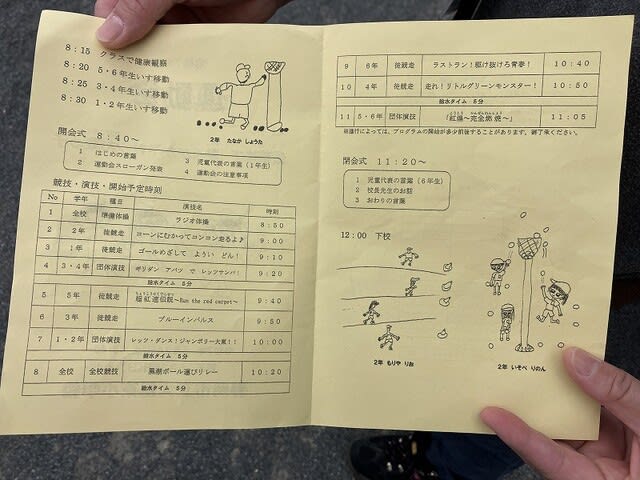 8:15 クラスで健康観察
8:20 5・6年生いす移動
8:25 3・4年生いす移動
8:30 1・2年生いす移動
2年 たなか しょうた
開会式 8:40〜
1 はじめの言葉
2 運動会スローガン発表
3 児童代表の言葉(1年生)
4 運動会の注意事項
競技・演技・開始予定時刻
No 学年 種目 演技名 時刻
1 全校 準備体操 ラジオ体操 8:50
2 2年 徒競走 コーンにむかってコンコン走るよ♪ 9:00
3 1年 徒競走 ゴールめざして ようい どん! 9:10
4 3・4年 団体演技 レッツサンバ! 9:20
給水タイム 5分
5 5年 徒競走 超紅連伝説〜Run the red carpet〜 9:40
6 3年 徒競走 ブルーインパルス 9:50
7 1・2年 団体演技 レッツ・ダンス!ジャンボリー大東!! 10:00
給水タイム 5分
8 全校 全校競技 ボール運びリレー 10:20
給水タイム 5分
9 6年 徒競走 ラストラン!駆け抜けろ青春! 10:40
10 4年 徒競走 走れ!リトルグリーンモンスター! 10:50
給水タイム 5分
11 5・6年 団体演技 「紅燿〜完全燃焼〜」 11:05
※進行によっては、プログラムの開始が多少前後することがあります。御了承ください。
閉会式 11:20〜
1 児童代表の言葉(6年生)
2 校長先生のお話
3 おわりの言葉
12:00 下校
2年 もりや りお
2年 いそべ りのん